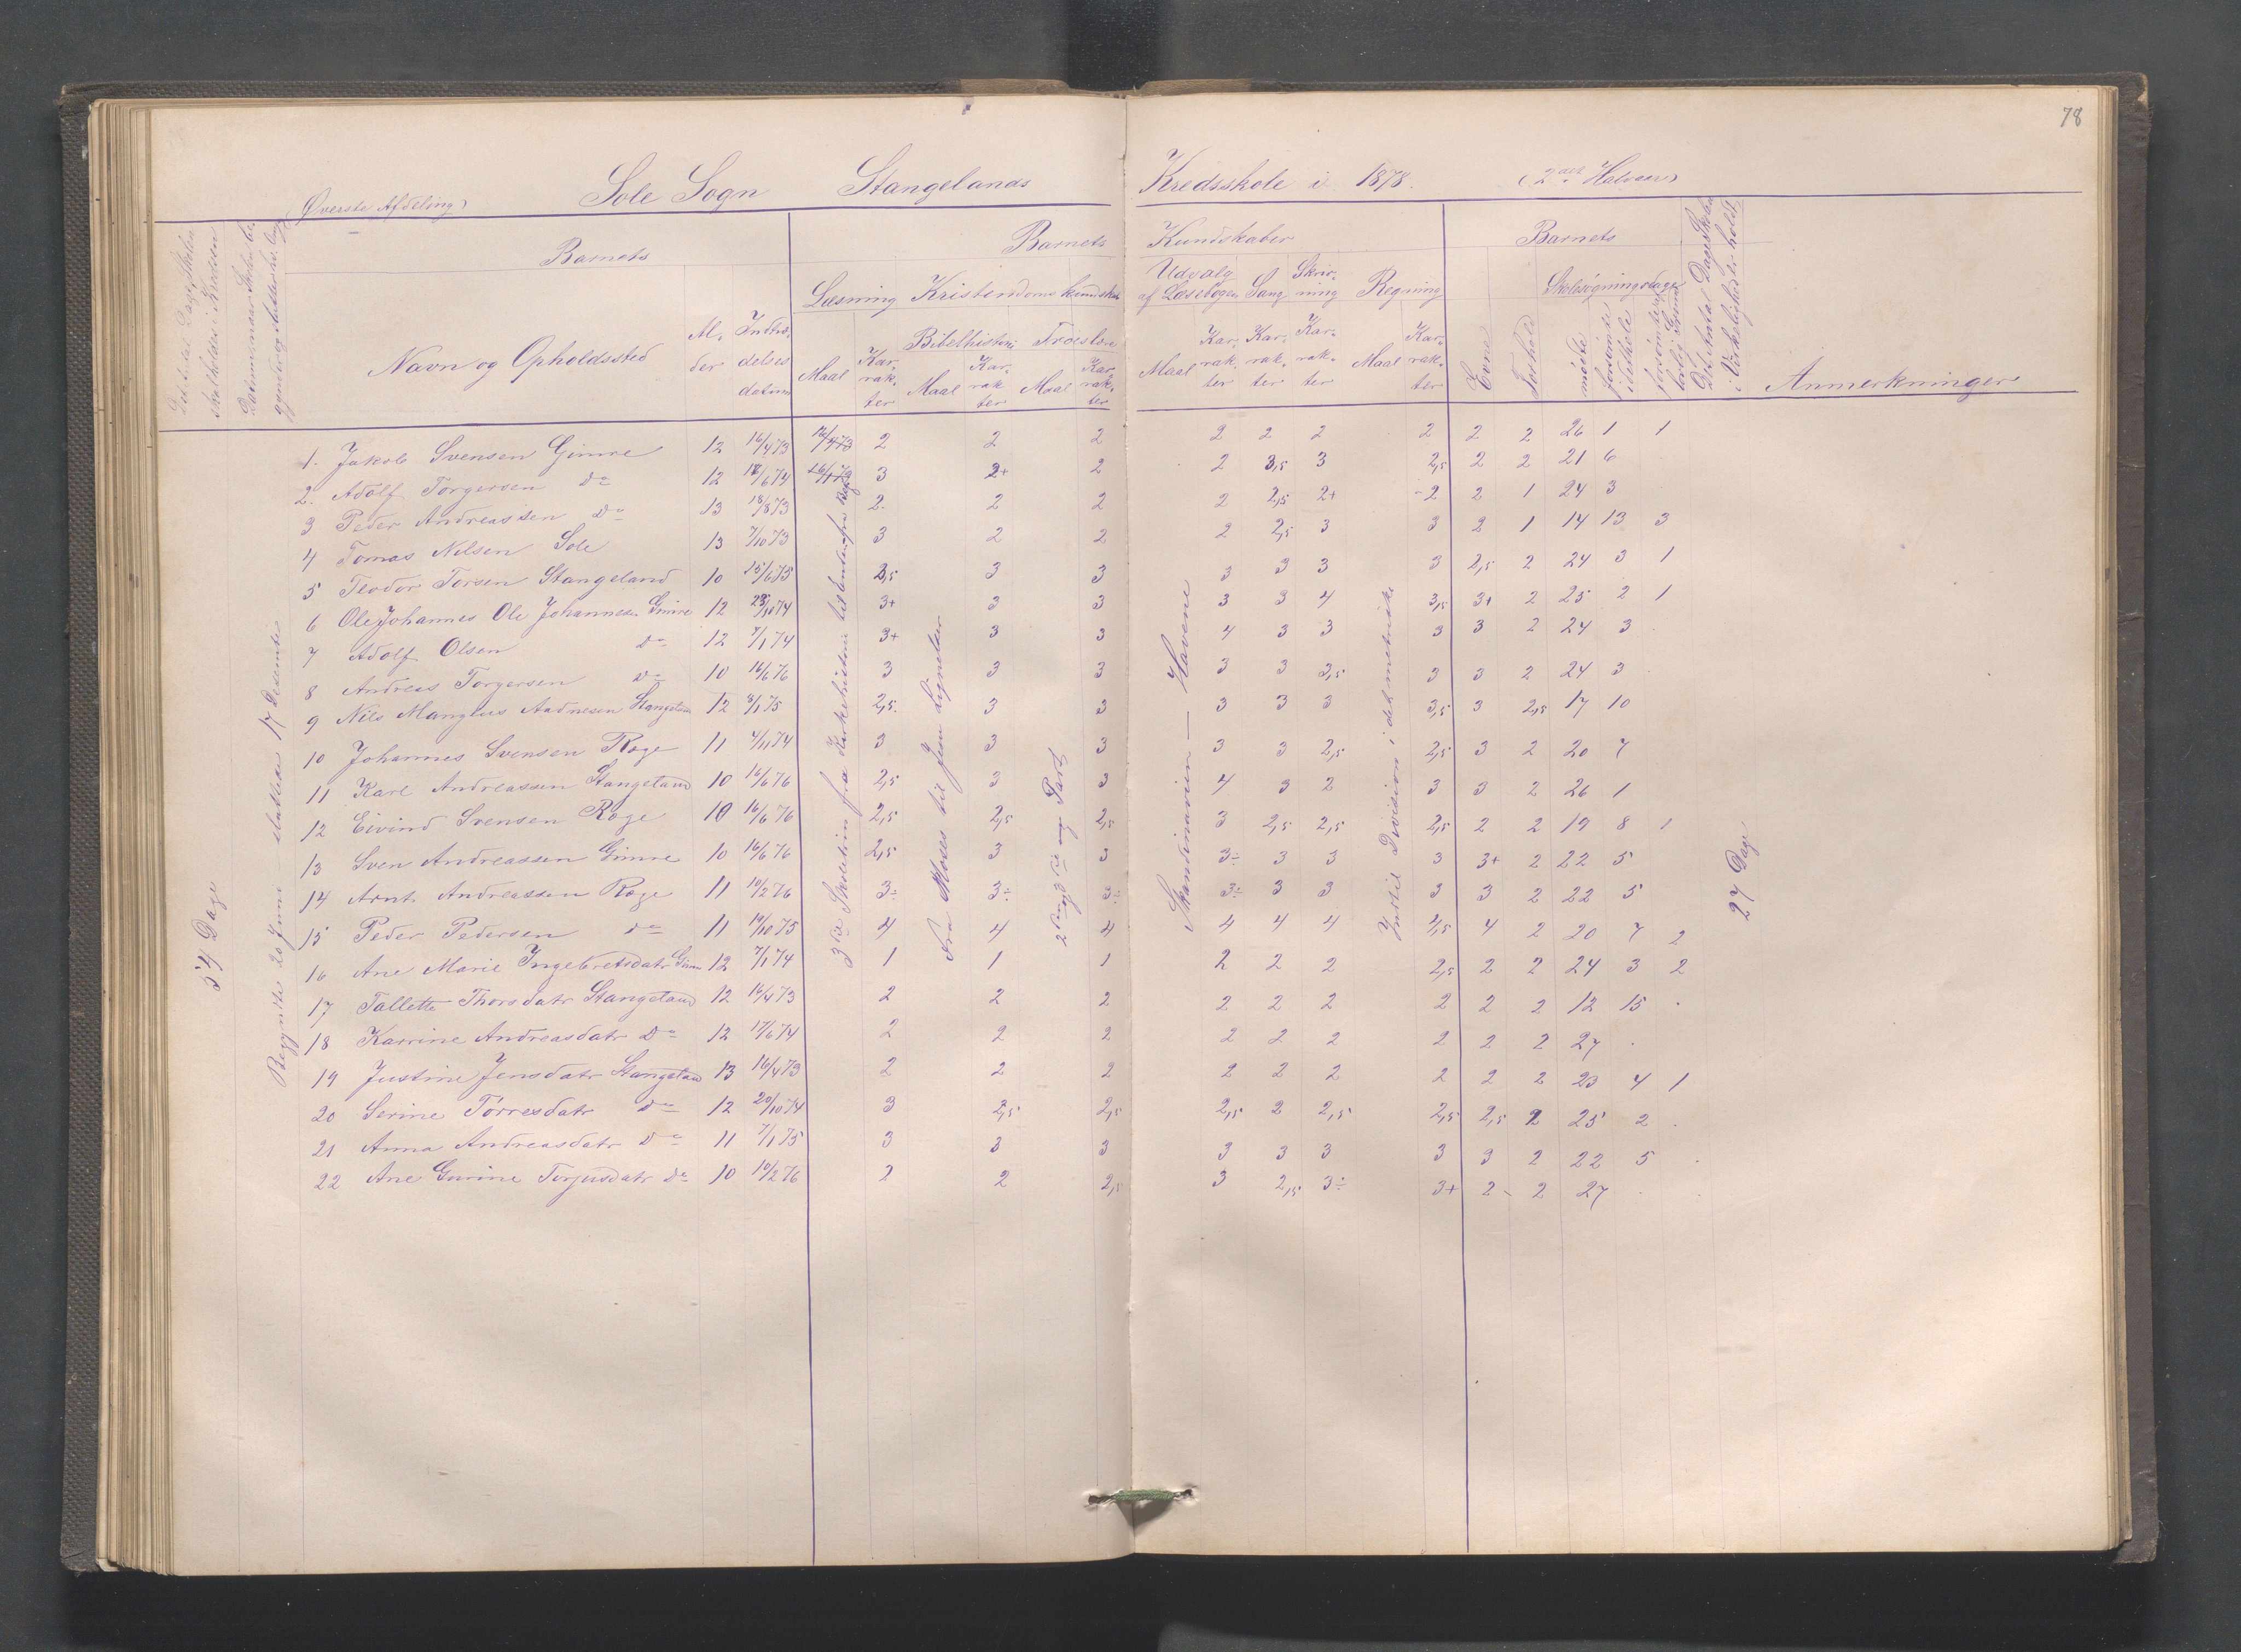 78
(Øverste Afdeling)
Sole Sogn Stangelands Kredsskole i 1878. (2det Halvaar)
Barnets
Barnets Kundskaber
Barnets
Læsning Kristendomskundskab
Udvalg af Læsebogen Sang Skrivning Regning
Skolesøgningsdage
Bibelhistorie Troeslære
Navn og Opholdssted
Alder Indtrædelses datum
Maal Karrakter Maal Karrakter Maal Karrakter
Maal Karrakter Karrakter Karrakter Maal Karrakter
Evne Forhold mødte forsømte
Det Antal Dage Skolen i Virkelighed er holdt
Anmerkninger
54 Dage
Begyndte 20 Juni sluttede 17 Desember
Fra Moses til Jesu Lignelser
2den og 3die Part
Skandinavien — Havene
Indtil Division i det metriske
27 Dage
1. Jakob Svensen Gimre 12 16/4 73 2 2 2 2 2 2 2 2 2 26 1 1
2. Adolf Torgersen do 12 17/6 74 3 2+ 2 2 3,5 3 2,5 2 2 21 6
3 Peder Andreassen do 13 18/8 73 2 2 2 2 2,5 2+ 2 2 1 24 3
4 Tomas Nilsen Sole 13 7/10 73 3 2 2 2 2,5 3 3 2 1 14 13 3
5 Teodor Torsen Stangeland 10 15/6 75 3,5 3 3 3 3 3 3 2,5 2 24 3 1
6 Ole Johannes Ole Johannesen Gimre 12 23/10 74 3+ 3 3 3 3 4 3,5 3+ 2 25 2 1
7 Adolf Olsen do 12 7/1 74 3+ 3 3 4 3 3 3 3 2 24 3
8 Andreas Torgersen do 10 16/6 76 3 3 3 3 3 3,5 3 3 2 24 3
9 Nils Mangnus Aadnesen Stangeland 12 8/1 75 2,5 3 3 3 3 3 3,5 3 2,5 17 10
10 Johannes Svensen Røge 11 4/11 74 3 3 3 3 3 2,5 2,5 3 2 20 7
11 Karl Andreassen Stangeland 10 16/6 76 2,5 3 3 4 3 2 3 3 2 26 1
12 Eivind Svensen Røge 10 16/6 76 2,5 2,5 2,5 3 2,5 2,5 2,5 2 2 19 8 1
13 Sven Andreassen Gimre 10 16/6 76 2,5 3 3 3÷ 3 3 3 3+ 2 22 5
14 Arnt Andreassen Røge 11 10/2 76 3÷ 3÷ 3÷ 3÷ 3 3 3 3 2 22 5
15 Peder Pedersen do 11 19/10 75 4 4 4 4 4 4 4,5 4 2 20 7 2
16 Ane Marie Ingebretsdatr Gimre 12 7/1 74 1 1 1 2 2 2 2,5 2 2 24 3 2
17 Tallette Thorsdatr Stangeland 12 16/4 73 2 2 2 2 2 2 2 2 2 12 15
18 Karrine Andreasdatr do 12 17/6 74 2 2 2 2 2 2 2 2 2 27
19 Justine Jensdatr Stangeland 13 16/4 73 2 2 2 2 2 2 2 2 2 23 4 1
20 Serine Tørresdatr do 12 20/10 74 3 2,5 2,5 2,5 2 2,5 2,5 2,5 2 25 2
21 Anna Andreasdatr do 11 7/1 75 3 3 3 3 3 3 3 3 2 22 5
22 Ane Gurine Torjusdatr do 10 10/2 76 2 2 2,5 3 2,5 3÷ 3+ 2 2 27